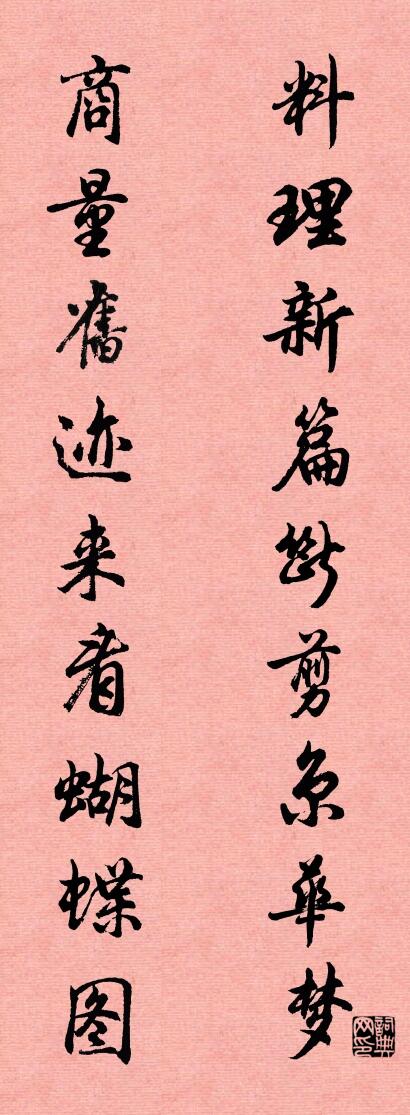 料理新篇斷剪京華梦
商量舊迹来看蝴蝶图
詞典网印